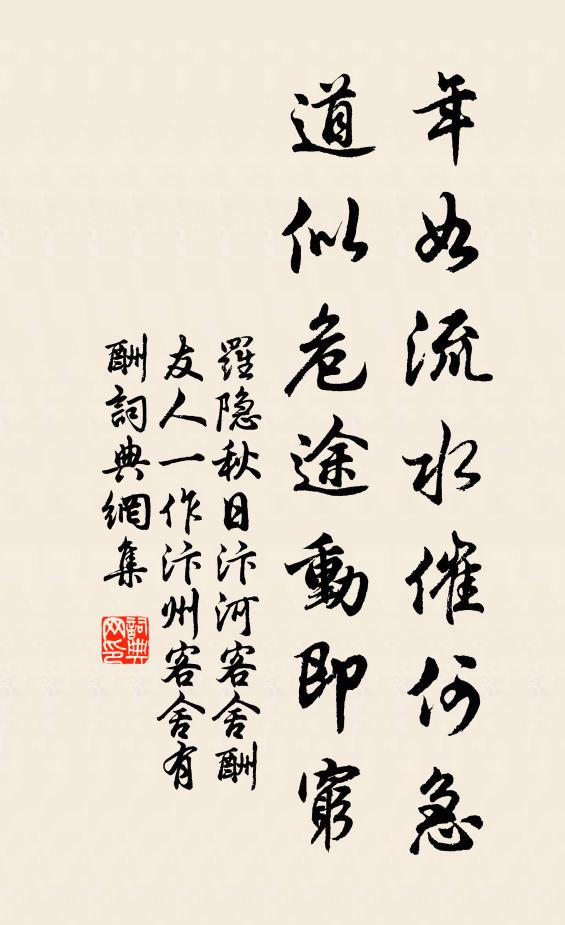 年如流水催何急
道似危途動即窮
羅隐秋日汴河客舍酬
友人一作汴州客舍有
酬詞典網集
詞典网印